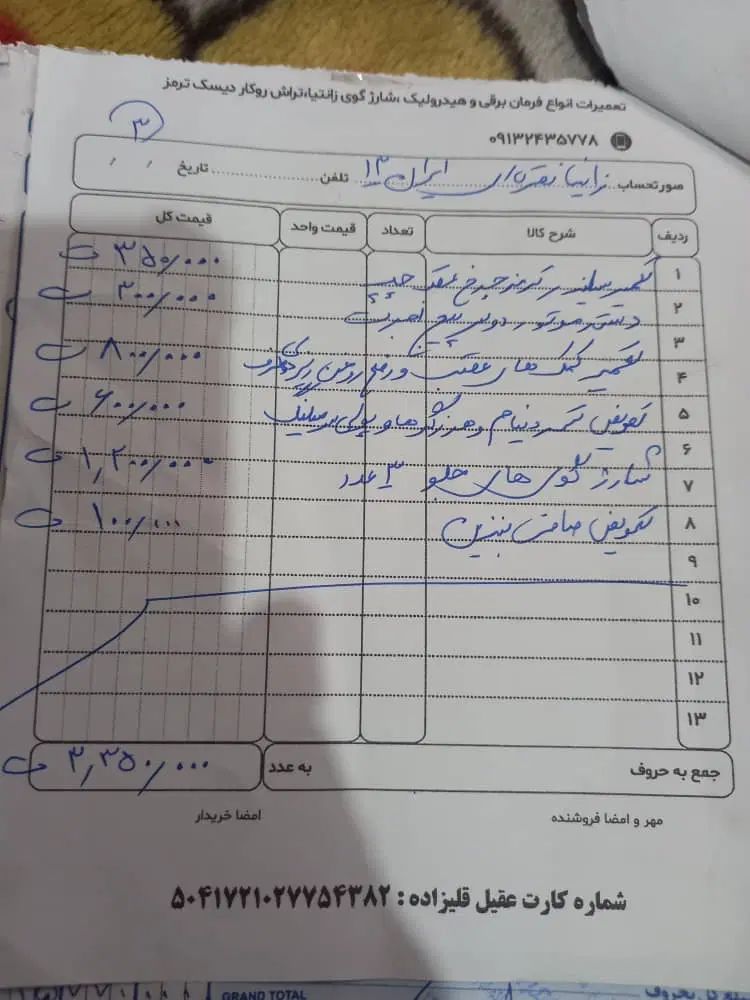 تعمیرات انواع فرمان برقی و هیدرولیک ،شارژ گوی زانتیا،تراش روکار دیسک ترمز
۰۹۱۳۲۴۳۵۷۷۸
۳
صورتحساب زانتیا نقره‌ای ایران ۱۳ تلفن تاریخ
ردیف شرح کالا تعداد قیمت واحد قیمت کل
۱ تعمیر سیلندر ترمز چرخ عقب چپ ۳۵۰/۰۰۰ ت
۲ دسته موتور دو سر پیچ ۳۰۰/۰۰۰ ت
۳
۴ تعمیر کمک های عقب و رفع روغن ۸۰۰/۰۰۰ ت
۵ تعویض تسمه دینام و هرزگردها و پولی سر میلنگ ۶۰۰/۰۰۰ ت
۶
۷ شارژ گوی های جلو ۳ عدد ۱,۲۰۰/۰۰۰ ت
۸ تعویض صافی بنزین ۱۰۰/۰۰۰ ت
۹
۱۰
۱۱
۱۲
۱۳
جمع به حروف به عدد ۳,۳۵۰/۰۰۰ ت
مهر و امضا فروشنده امضا خریدار
شماره کارت عقیل قلیزاده : ۵۰۴۱۷۲۱۰۲۷۷۵۴۳۸۲
GRAND TOTAL